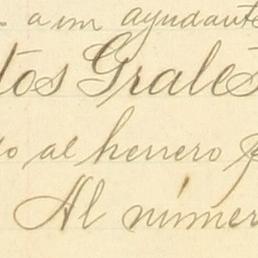 a im ayudante
tos Grales
o al herrero
Al número